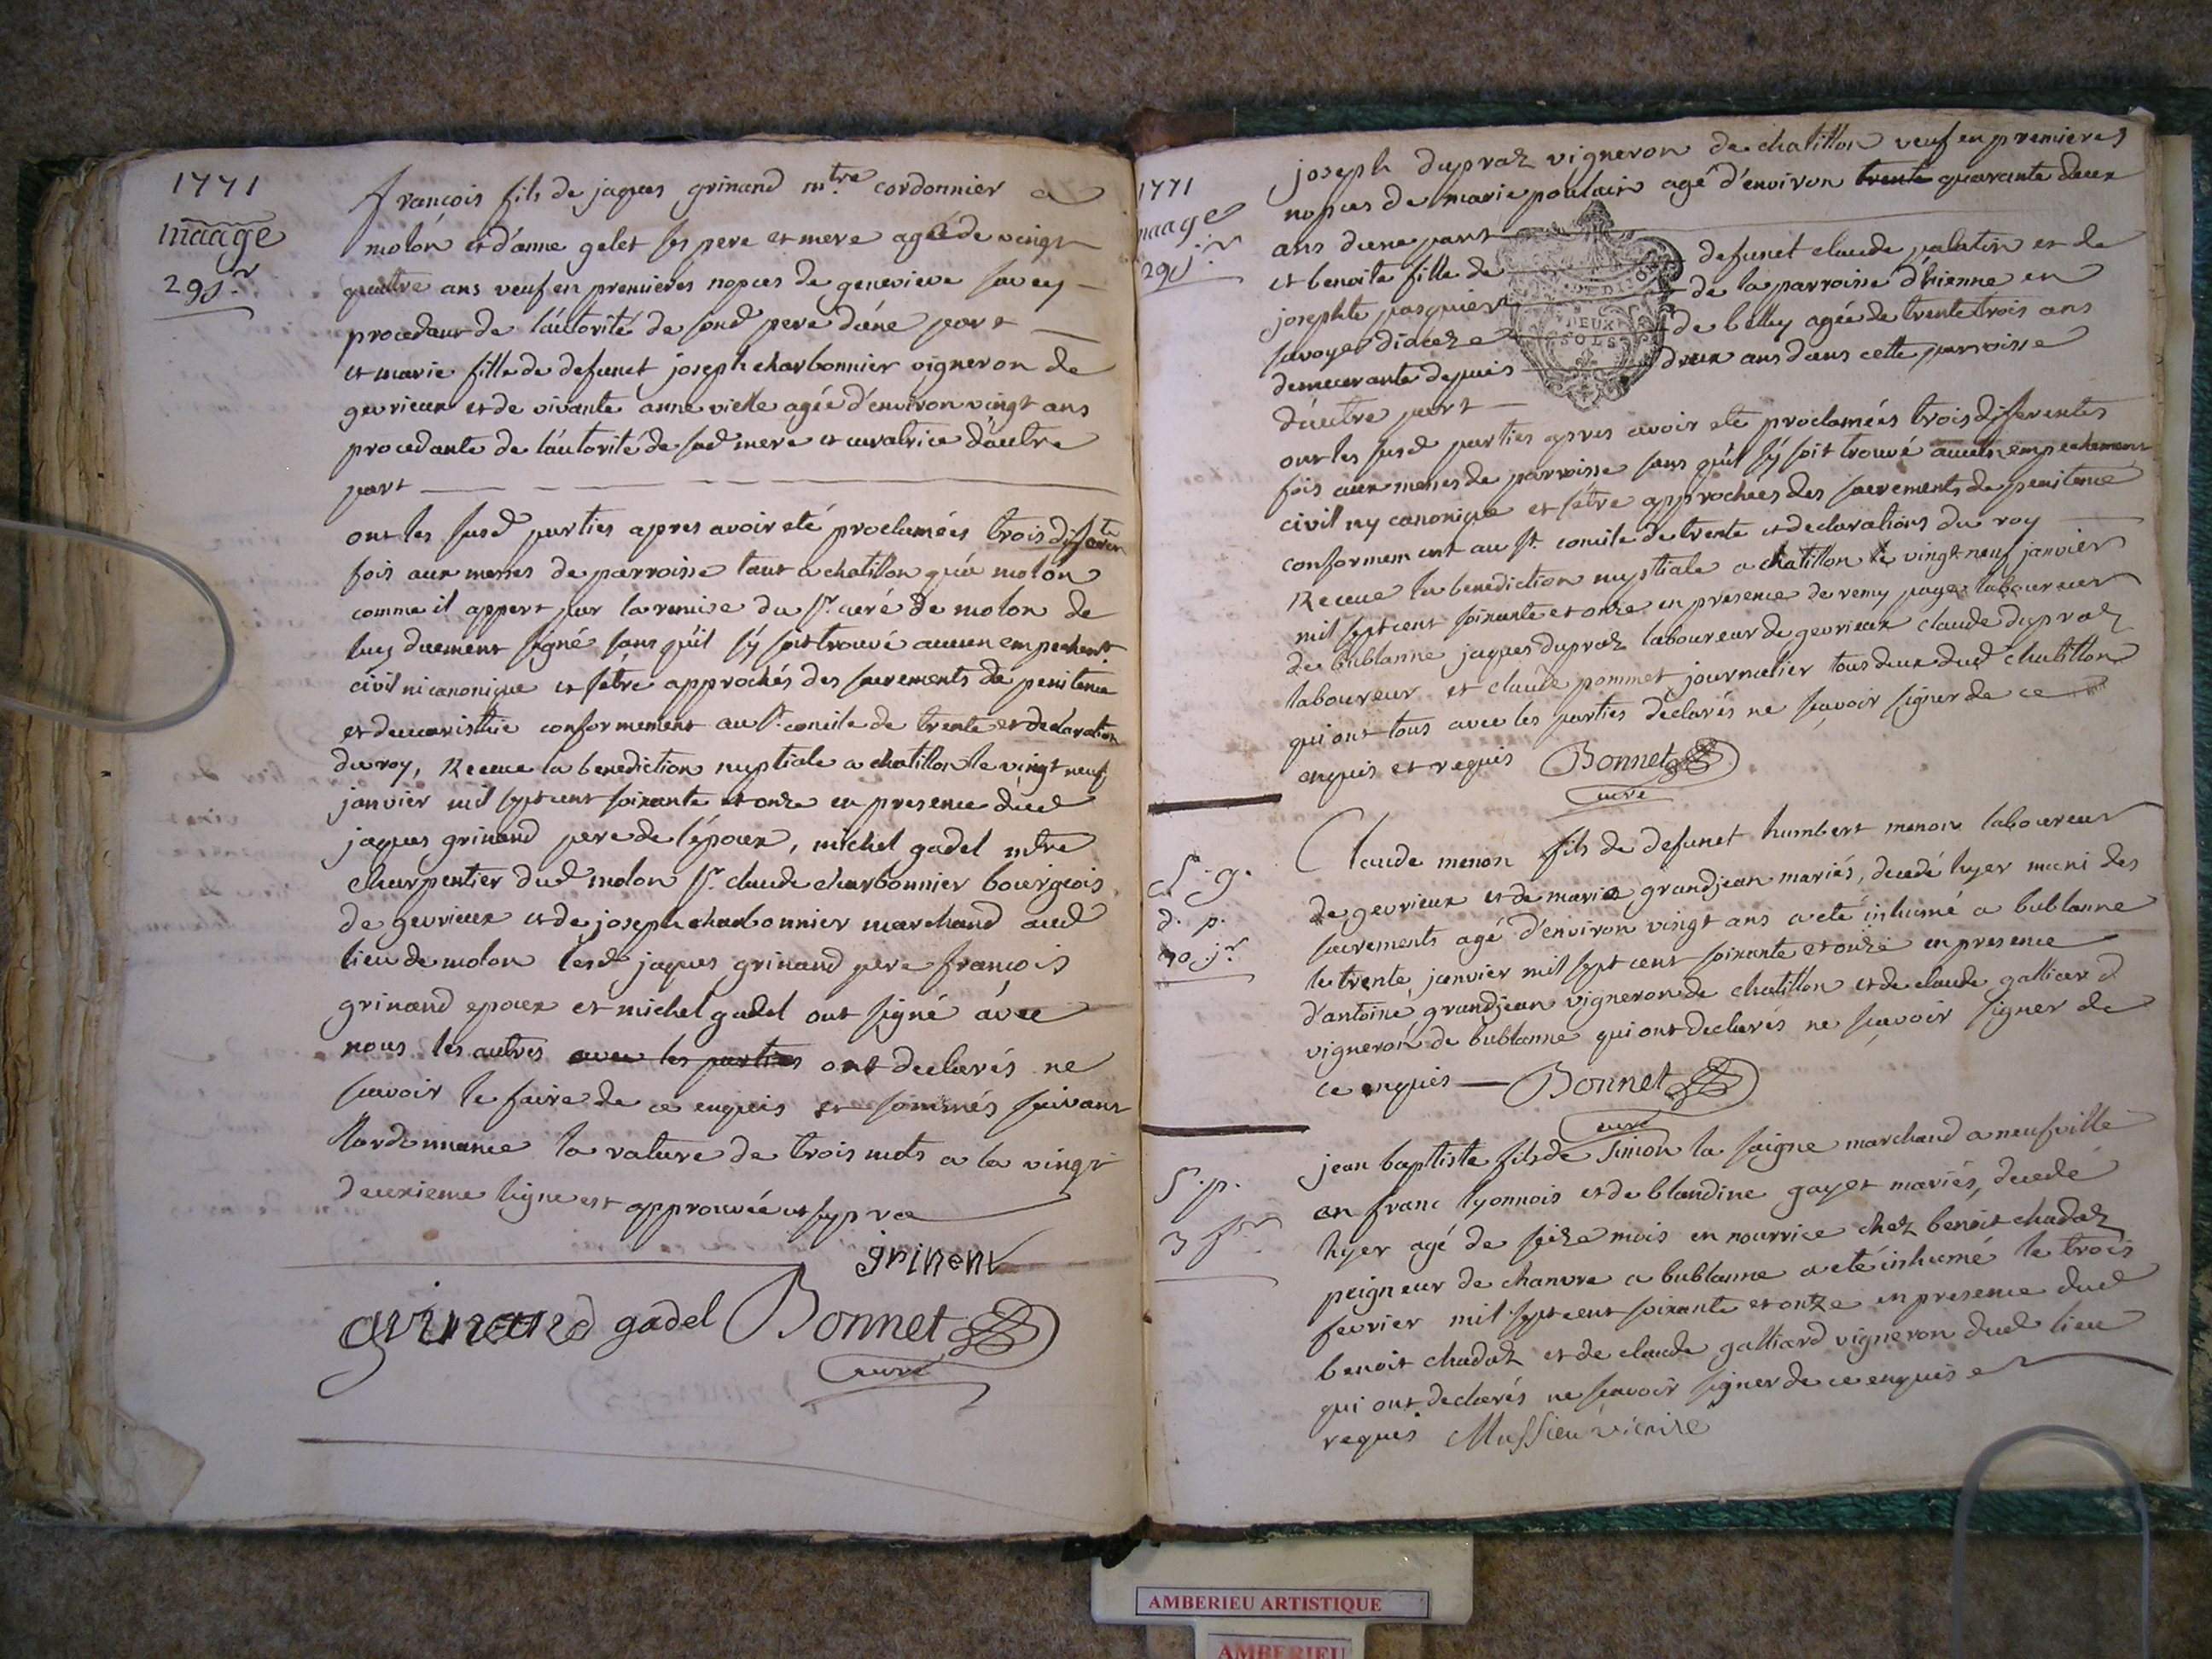 1771
maage
29 j.r
françois fils de jaques grinand mtre cordonnier a
molon et d'anne gelet ses pere et mere agé de vingt
quattre ans veuf en premieres nopces de genevieve savey
procedant de l'autorité de sond pere d'une part
et marie fille de defunct joseph charbonnier vigneron de
gevrieux et de vivante anne vielle agée d'environ vingt ans
procedante de l'autorité de sad mere et curatrice d'autre
part
ont les susd parties apres avoir eté proclamées trois diferentes
fois aux messes de parroisse tant a chatillon qu'a molon
comme il appert par la remise du sr. curé de molon de
luy duement signé sans qu'il s'y soit trouvé aucun empechent
civil ni canonique et s'etre approchés des sacrements de penitence
et deucaristhie conformement au st. concile de trente et declaration
du roy, Receue la benediction nuptiale a chatillon le vingt neuf
janvier mil sept cent soixante et onze en presence dud
jaques grinand pere de l'époux, michel gadel mtre
charpentier dud molon sr. claude charbonnier bourgeois
de gevrieux et de joseph charbonnier marchand aud
lieu de molon lesd jaques grinand pere françois
grinand epoux et michel gadel ont signé avec
nous les autres avec les parties ont declarés ne
scavoir le faire de ce enquis et sommés suivant
lordonnance la rature de trois mots a la vingt
deuxieme ligne est approuvée ut supra
grinent
grinand gadel Bonnet
curé
1771
maage
29 j.r
joseph dupraz vigneron de chatillon veuf en premieres
nopces de marie poulain agé d'environ trente quarante deux
ans d'une part
et benoite fille de defunct claude palatin et de
josephte pasquier de la parroisse d'hienne en
savoye diocèze de belley agée de trente trois ans
demeurante depuis deux ans dans cette parroisse
d'autre part
DEUX
SOLS
ont les susd parties apres avoir eté proclamées trois diferentes
fois aux messes de parroisse sans qu'il s'y soit trouvé aucun empechement
civil ny canonique et s'etre approchées des sacrements de penitence
conformement au st. concile de trente et declarations du roy
Receue la benediction nuptiale a chatillon le vingt neuf janvier
mil sept cent soixante et onze en presence de remy page laboureur
de bublanne jaques dupraz laboureur de gevrieux claude dupraz
laboureur et claude pommet journalier tous deux dud chatillon
qui ont tous avec les parties declarés ne scavoir signer de ce
enquis et requis Bonnet
curé
S. g.
d. p.
30 j.r
Claude menon fils de defunct humbert menon laboureur
de gevrieux et de marie grandjean mariés, decedé hyer muni des
sacrements agé d'environ vingt ans a eté inhumé a bublanne
le trente janvier mil sept cent soixante et onze en presence
d'antoine grandjean vigneron de chatillon et de claude galliard
vigneron de bublanne qui ont declarés ne scavoir signer de
ce enquis Bonnet
curé
S. p.
3 f.r
jean baptiste fils de Simon la saigne marchand a neufville
en franc lyonnois et de blandine gayet mariés, decedé
hyer agé de seize mois en nourrice chez benoit chadaz
peigneur de chanvre a bublanne a eté inhumé le trois
fevrier mil sept cent soixante et onze en presence dud
benoit chadaz et de claude galliard vigneron dud lieu
qui ont declarés ne scavoir signer de ce enquis et
requis Mussieu vicaire
AMBERIEU ARTISTIQUE
AMBERIEU